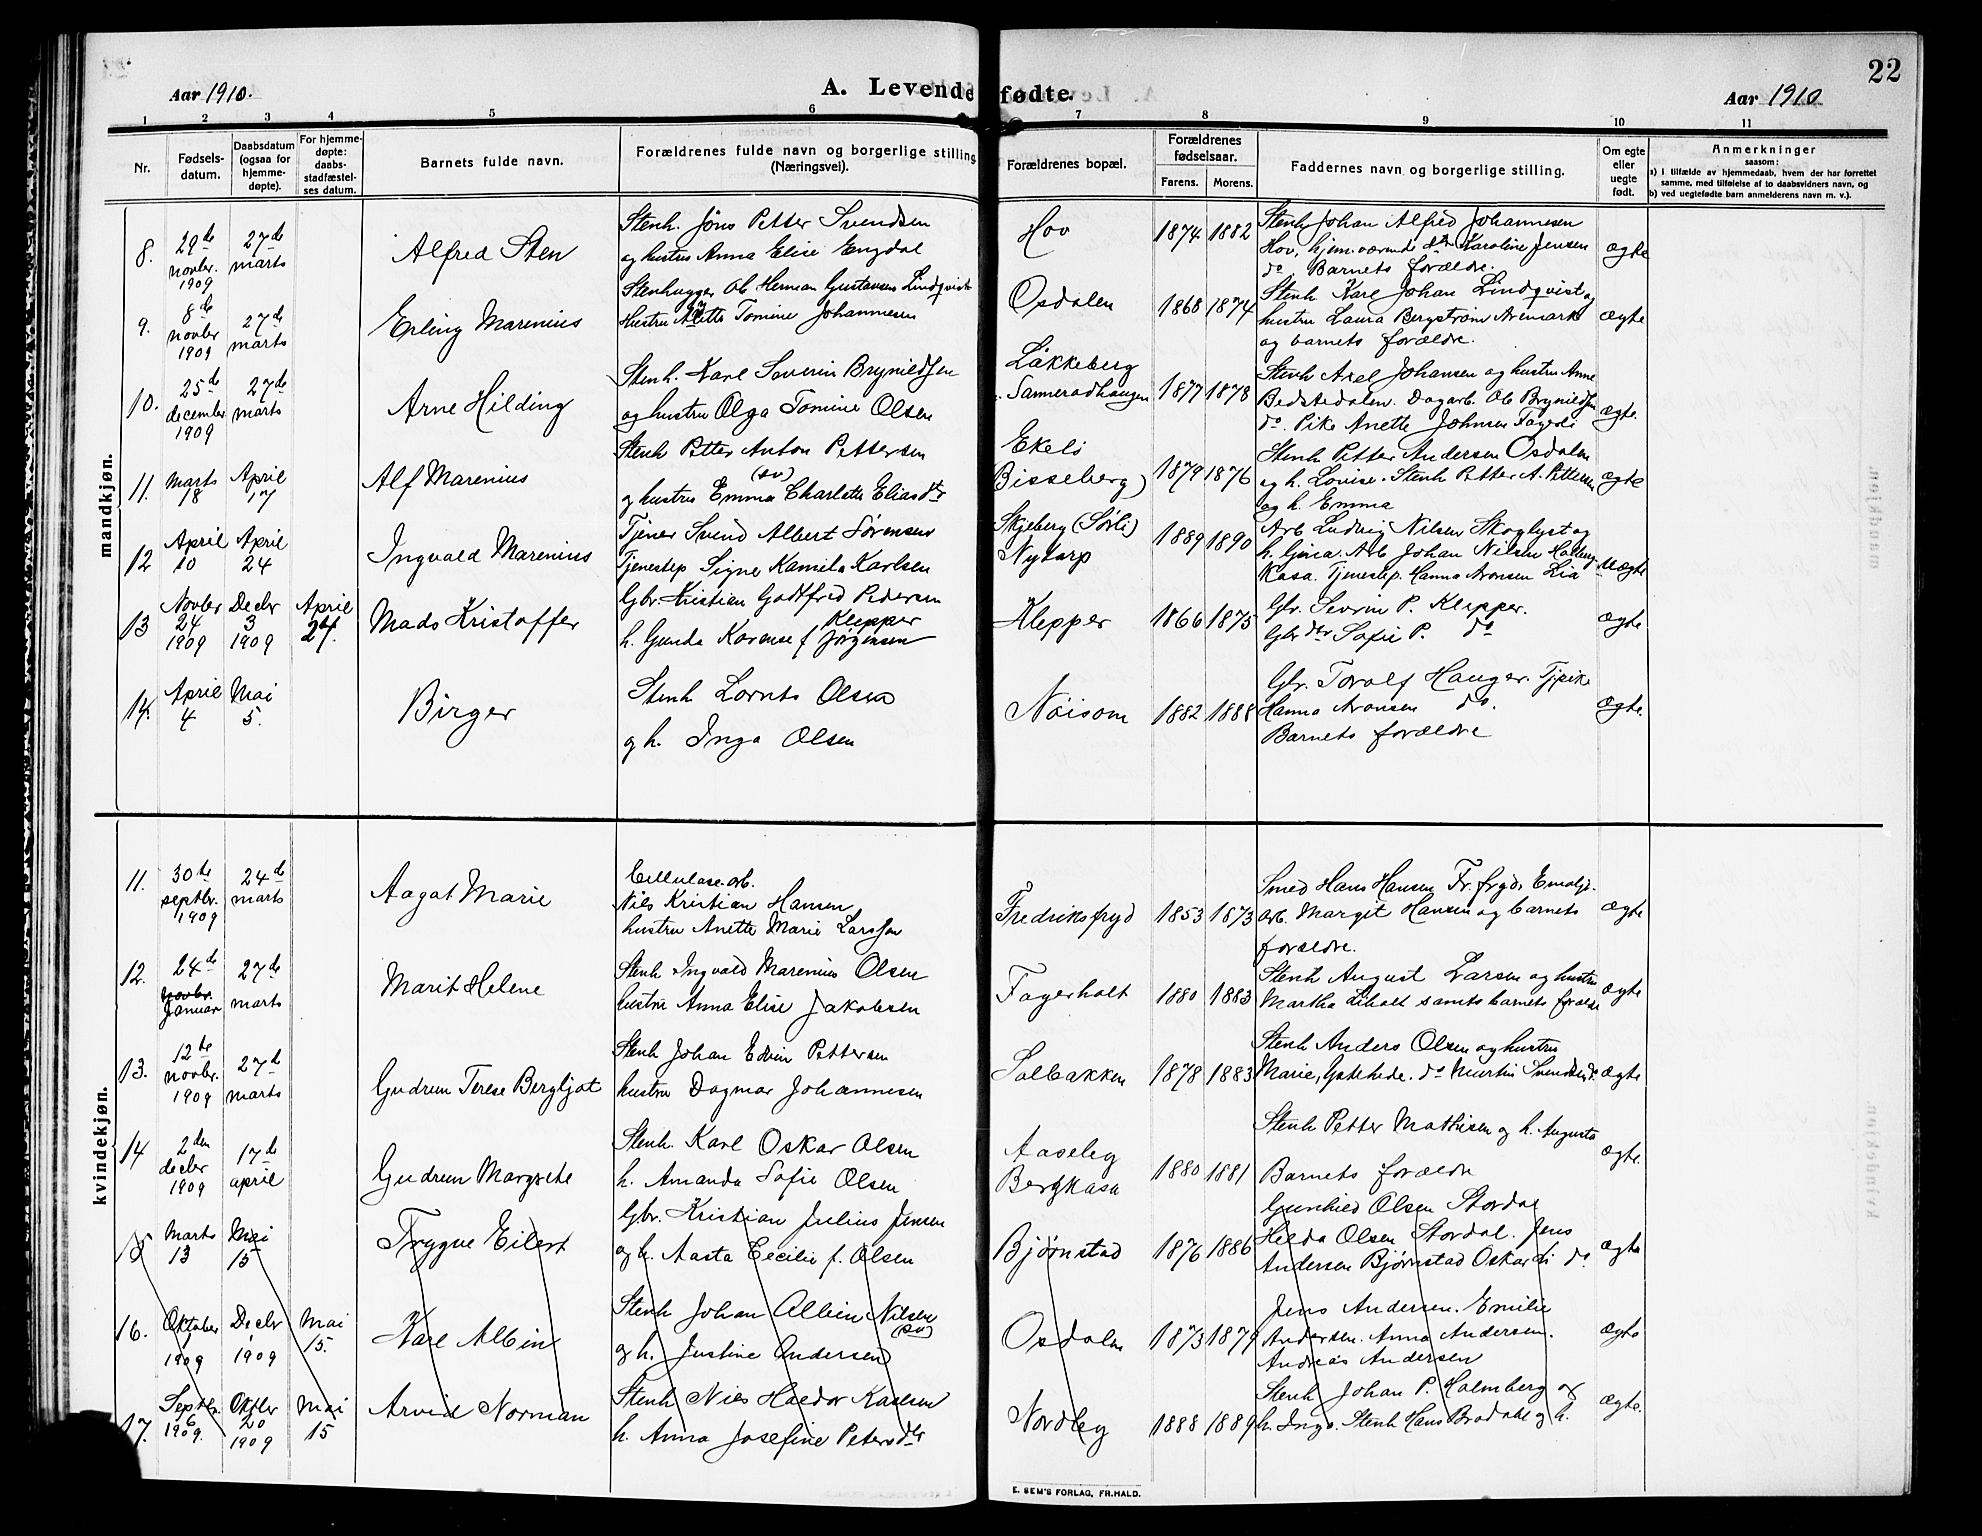 22
Aar 1910.
A. Levendefødte.
Aar 1910
1 2 3 4 5 6 7 8 9 10 11
Nr.
Fødsels-
datum.
Daabsdatum
(ogsaa for
hjemme-
døpte).
For hjemme-
døpte:
daabs-
stadfæstel-
ses datum.
Barnets fulde navn.
Forældrenes fulde navn og borgerlige stilling
(Næringsvei).
Forældrenes bopæl.
Forældrenes
fødselsaar.
Farens. Morens.
Faddernes navn og borgerlige stilling.
Om egte
eller
uegte
født.
Anmerkninger
saasom:
a) i tilfælde av hjemmedaab, hvem der har forrettet
samme, med tilføielse af to daabsvidners navn, og
b) ved uegtefødte barn anmelderens navn m. v.).
mandkjøn.
8. 29de novbr. 1909 27de marts Alfred Sten
Stenh. Jöns Petter Svendsen
og hustru Anna Elise Engdal
Hov 1874 1882
Stenh. Johan Alfred Johannesen
Hov, hjem.værende dtr Karoline Jensen
do. Barnets forældre.
ægte
9. 8de novbr 1909 27de marts Erling Marenius
Stenhugger Ole Herman Gustavsen Lindqvist
Hustru Anette Tomine Johannesen
Osdalen 1868 1874
Stenh. Karl Johan Lindqvist og
hustru Laura Bergström Aremark
og barnets forældre.
ægte
10. 25de december 1909 27de marts Arne Hilding
Stenh. Karl Severin Brynildsen
og hustru Olga Tomine Olsen
Låkkeberg
Sameradhaugen 1877 1878
Stenh Axel Johansen og hustru Anne
Bedstedalen. Dagarb. Ole Brynildsen
do. Pike Anette Johnsen Fagerli
ægte.
11. Marts 18 April 17 Alf Marenius
Stenh Petter Anton Pettersen
(sv)
og hustru Emma Charlotte Eliasdtr
Ekeli
Bisseberg) 1879 1876
Stenh Petter Andersen Osdalen
og h. Lovise. Stenh Petter A. Pettersen
og h. Emma
ægte
12 April 10 April 24 Ingvald Marenius
Tjener Svend Albert Sörensen
Tjenestep Signe Kamila Karlsen
Skjeberg (Sørli)
Nytorp 1889 1890
Arb Ludvig Nilsen Skoglyst og
h. Gina. Arb Johan Nilsen
Kasa. Tjenestep. Hanna Aronsen Lia
uægte
13 Novbr 24 1909 Decbr 3 1909 April 24. Mads Kristoffer
Gbr. Kristian Godtfred Pedersen
Klepper
h. Gunda Karense f Jørgensen
Klepper 1866 1875
Gbr. Sevrin P. Klepper.
Gbr dtr Sofie P. do
ægte
14. April 4 Mai 5. Birger
Stenh Lornts Olsen
og h. Inga Olsen
Nöisom 1882 1888
Gbr. Toralf Hauger. Tjpike
Hanna Aronsen do.
Barnets forældre
ægte.
kvindekjøn.
11. 30te septbr. 1909 24de marts Aagot Marie
Cellulose.arb.
Nils Kristian Hansen,
hustru Anette Marie Larssen
Fredriksfryd 1853 1873
Smed Hans Hansen Fr.fryd. Emalj.
arb. Margit Hansen og barnets
forældre.
ægte
12. 24de novbr. Januar 27de marts Marit Helene
Stenh Ingvald Marenius Olsen
hustru Anna Elise Jakobsen
Fagerholt 1880 1883
Stenh August Larsen og hustru
Martha Liholt samt barnets forældre
ægte
13. 12te novbr. 1909 27de marts Gudrun Terese Bergljot
Stenh Johan Edvin Pettersen
hustru Dagmar Johannesen
Solbakken 1878 1883
Stenh Anders Olsen og hustru
Marie, Gatehede. do Martin Svendsen do
ægte
14 2den decbr 1909 17de april Gudrun Margrete
Stenh. Karl Oskar Olsen
h. Amanda Sofie Olsen
Aaseleg
Bergkasa 1880 1881
Stenh Petter Mathisen og h. Augusta
Barnets forældre
ægte.
15 Marts 13 Mai 15 Trygve Eilert
Gbr. Kristian Julius Jensen
og h. Aasta Cecilie f. Olsen
Bjørnstad 1876 1886
Gunhild Olsen Stordal
Hilda Olsen Stordal. Jens
Andersen Bjørnstad Oskar di do
ægte
16. Oktober 1 1909 Decbr 1 1909 Mai 15. Karl Albin
Stenh Johan Albin Nilsen
(sv)
og h. Justine Andersen
Osdalen 1873 1879
Jens Andersen. Emilie
Andersen. Anna Andersen.
Andreas Andersen
ægte
17. Septbr. 6 1909. Oktbr 20 1909 Mai 15 Arvid Norman
Stenh Nils Haldor Karlsen
h. Anna Josefine Petersdtr
Nordby 1888 1889
Stenh Johan P. Holmberg og
h. Inga. Stenh Hans Brodahl og h.
ægte.
E. SEM'S FORLAG, FR.HALD.